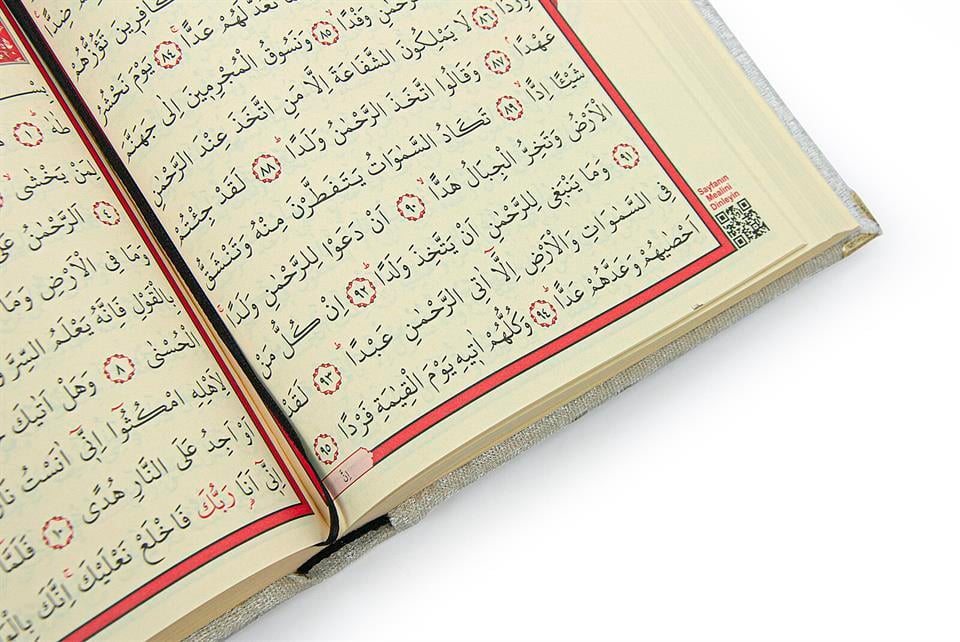 ضِدًّا
كَافِرِينَ تَؤُزُّهُمْ
نَعُدُّ لَهُمْ عَدًّاۚ ﴿٨٤﴾ يَوْمَ نَحْشُرُ
الرَّحْمٰنِ وَفْدًاۙ ﴿٨٥﴾ وَنَسُوقُ الْمُجْرِمِينَ اِلٰى جَهَنَّمَ
وِرْدًاۢ ﴿٨٦﴾ لَا يَمْلِكُونَ الشَّفَاعَةَ اِلَّا مَنِ اتَّخَذَ عِنْدَ الرَّحْمٰنِ
عَهْدًاۢ ﴿٨٧﴾ وَقَالُوا اتَّخَذَ الرَّحْمٰنُ وَلَدًاۜ ﴿٨٨﴾ لَقَدْ جِئْتُمْ
شَيْـًٔا اِدًّاۙ ﴿٨٩﴾ تَكَادُ السَّمٰوَاتُ يَتَفَطَّرْنَ مِنْهُ وَتَنْشَقُّ
الْاَرْضُ وَتَخِرُّ الْجِبَالُ هَدًّاۙ ﴿٩٠﴾ اَنْ دَعَوْا لِلرَّحْمٰنِ وَلَدًاۚ
﴿٩١﴾ وَمَا يَنْبَغ۪ي لِلرَّحْمٰنِ اَنْ يَتَّخِذَ وَلَدًاۜ ﴿٩٢﴾ اِنْ كُلُّ مَنْ
فِي السَّمٰوَاتِ وَالْاَرْضِ اِلَّٓا اٰتِي الرَّحْمٰنِ عَبْدًاۜ ﴿٩٣﴾ لَقَدْ
اَحْصٰيهُمْ وَعَدَّهُمْ عَدًّاۜ ﴿٩٤﴾ وَكُلُّهُمْ اٰت۪يهِ يَوْمَ الْقِيٰمَةِ فَرْدًا ﴿٩٥﴾
اِنَّ
Sayfanın
Mealini
Dinleyin
طٰهٰۜ ﴿١﴾
لِمَنْ يَخْشٰىۙ
﴿٤﴾ اَلرَّحْمٰنُ عَلَى
وَمَا فِي الْاَرْضِ وَمَا
بِالْقَوْلِ فَاِنَّهُ يَعْلَمُ السِّرَّ
الْحُسْنٰى ﴿٨﴾ وَهَلْ اَتٰيكَ
لِاَهْلِهِ امْكُثُٓوا اِنّ۪ٓي اٰنَسْتُ
اَوْ اَجِدُ عَلَى النَّارِ هُدًى ﴿١٠﴾ فَلَمَّٓا
اِنّ۪ٓي اَنَا۬ رَبُّكَ فَاخْلَعْ نَعْلَيْكَۚ اِنَّكَ